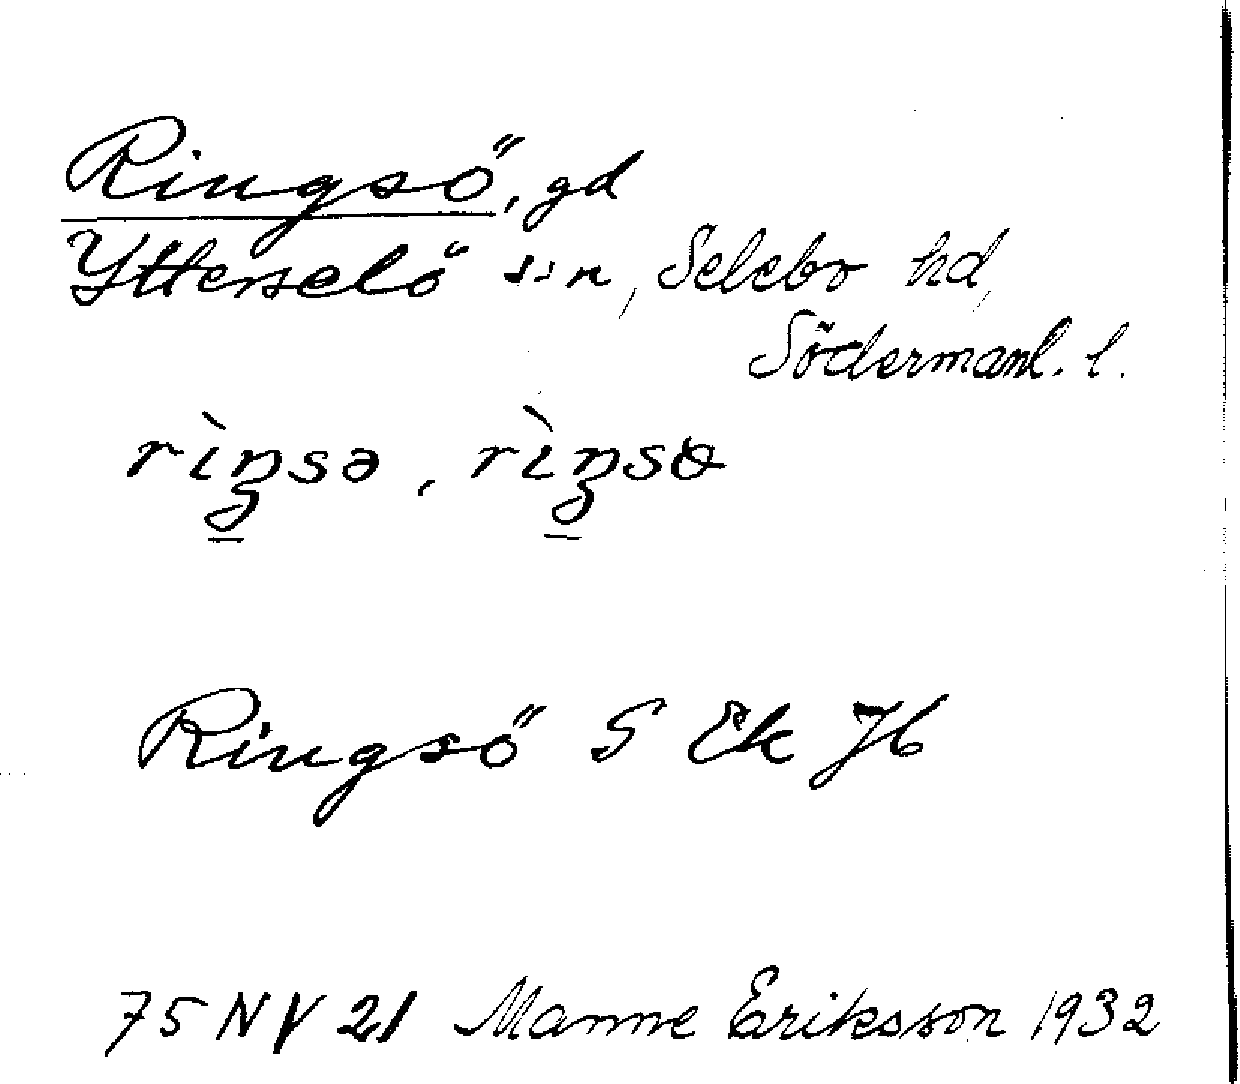 Ringsö, gd
Ytterselö ssn, Selebo hd,
Södermanl. l.
rìŋsə, rìŋsɵ
Ringsö G Ek H
75 NV 21 Manne Eriksson 1932